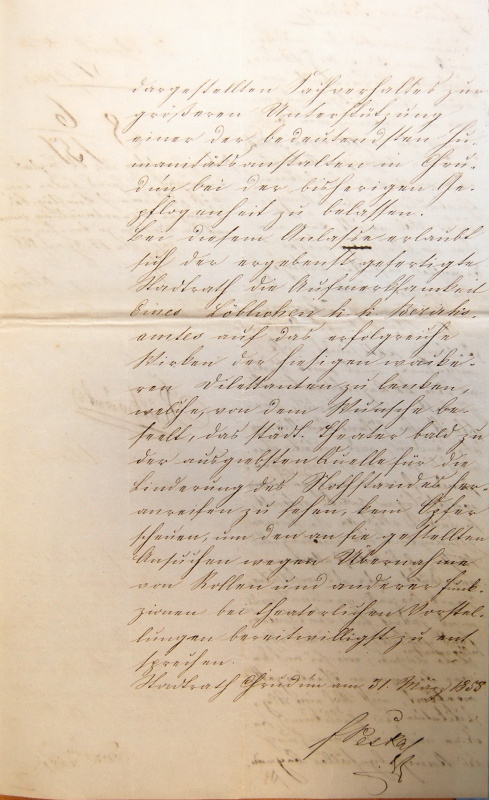 dargestellten Sachverhaltes zur
größeren Unterstützung
einer der bedeutendsten Hu-
manitätsanstalten in Chru-
dim bei der bisherigen Ge-
pflogenheit zu belassen.
Bei diesem Anlasse erlaubt
sich der ergebenst gefertigte
Stadtrath die Aufmerksamkeit
Eines Löblichen k. k. Bezirks-
amtes auf das erfolgreiche
Wirken der hiesigen wacke-
ren Dilettanten zu lenken,
welche, von dem Wunsche be-
seelt, das städt. Theater bald zu
der ausgiebsten Quelle für die
Linderung des Nothstandes her-
anreifen zu sehen, kein Opfer
scheuen, um den an sie gestellten
Ansuchen wegen Übernahme
von Rollen und anderer Funk-
zionen bei theaterlichen Vorstel-
lungen bereitwilligst zu ent-
sprechen.
Stadtrath Chrudim am 31. März 1858